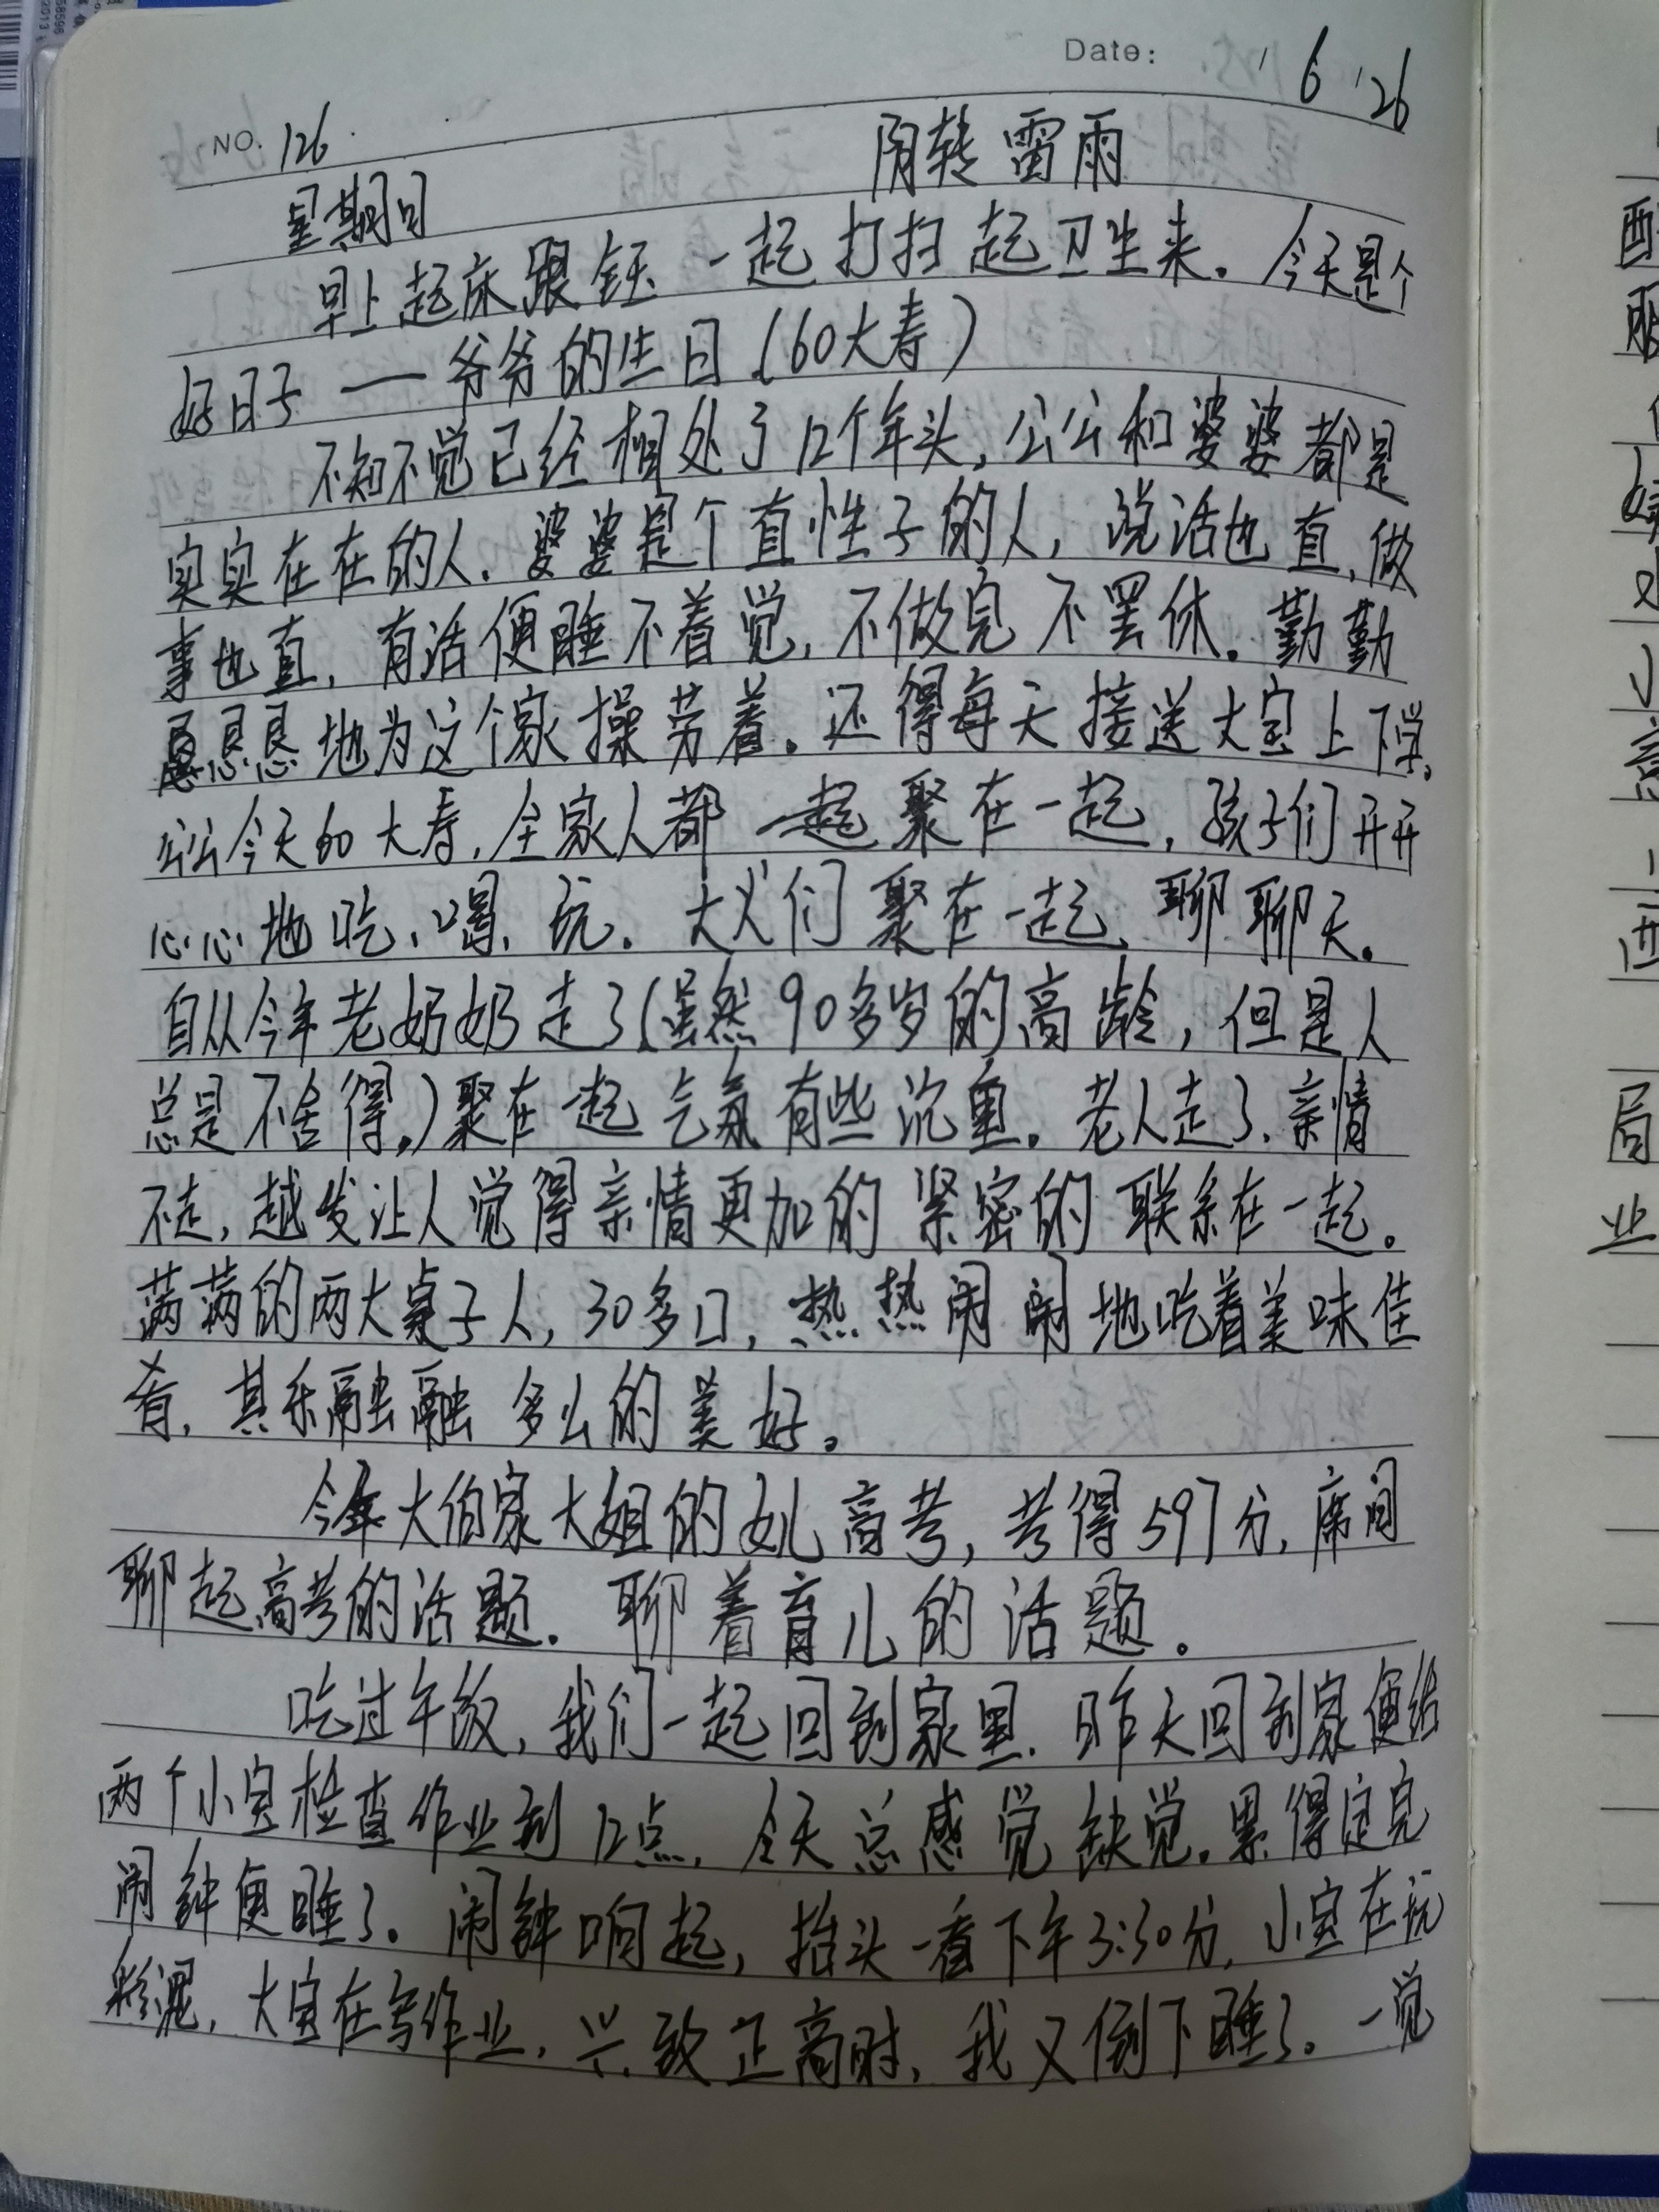 Date: '6 '26
NO. 126
星期日 阴转雷雨
早上起床跟钰一起打扫起卫生来。今天是个
好日子——爷爷的生日(60大寿)
不知不觉已经相处了12个年头,公公和婆婆都是
实实在在的人。婆婆是个直性子的人,说话也直,做
事也直,有活便睡不着觉,不做完不罢休。勤勤
恳恳地为这个家操劳着。还得每天接送大宝上下学。
公公今天60大寿,全家人都一起聚在一起,孩子们开开
心心地吃、喝、玩。大人们聚在一起,聊聊天。
自从今年老奶奶走了(虽然90多岁的高龄,但是人
总是不舍得。)聚在一起气氛有些沉重。老人走了、亲情
不走,越发让人觉得亲情更加的紧密的联系在一起。
满满的两大桌子人,30多口,热热闹闹地吃着美味佳
肴,其乐融融多么的美好。
今年大伯家大姐的女儿高考,考得597分,席间
聊起高考的话题。聊着育儿的话题。
吃过午饭,我们一起回到家里。昨天回到家便给
两个小宝检查作业到12点,今天总感觉缺觉。累得定完
闹钟便睡了。闹钟响起,抬头一看下午3:30分,小宝在玩
彩泥,大宝在写作业,兴致正高时,我又倒下睡了。一觉
局
业